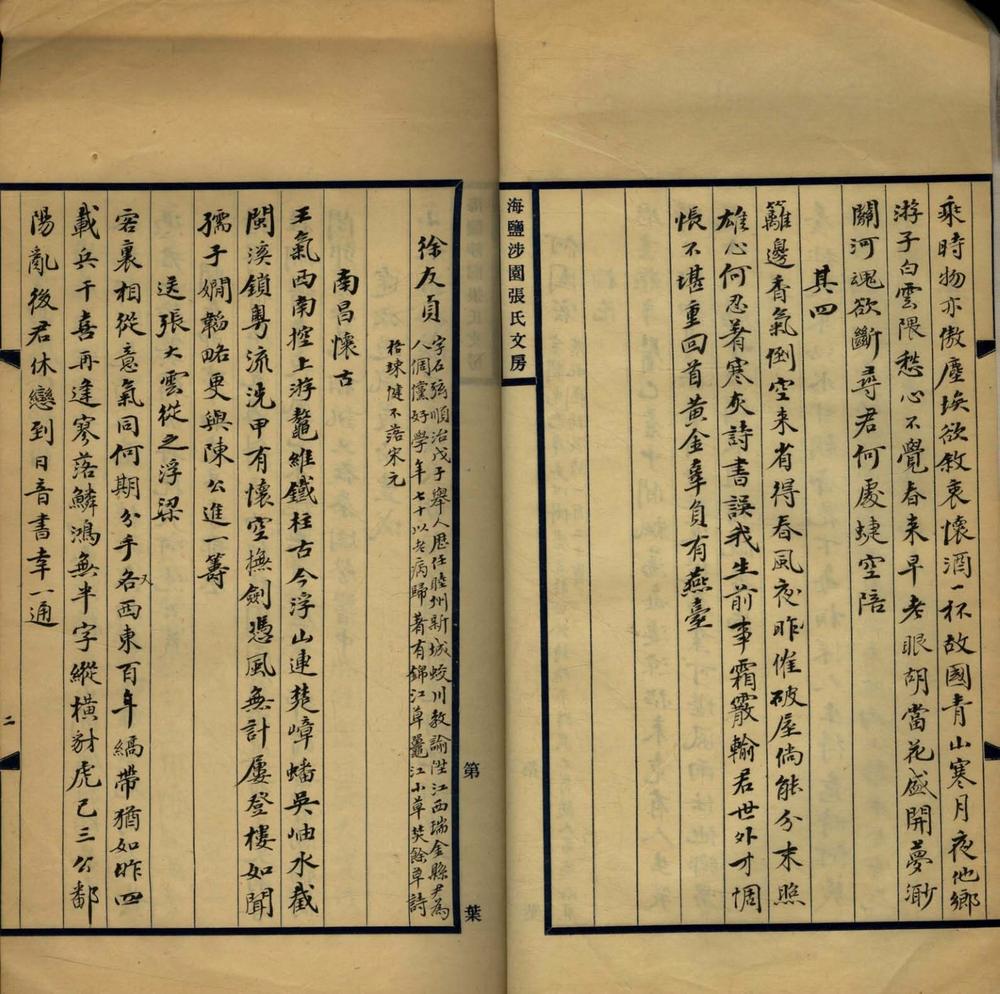 乘時物亦傲塵埃欲敘衷懷酒一杯故國青山寒月夜他鄉
游子白雲隈愁心不覺春来早老眼胡當花盛開夢渺
關河魂欲斷尋君何處蜨空陪
其四
籬邊香氣倒空来省得春風夜昨催破屋倘能分末照
雄心何忍著寒灰詩書誤我生前事霜霰輸君世外才惆
悵不堪重回首黄金辜負有燕臺
海鹽涉園張氏文房
第 葉
徐友貞
字石殤順治戊子舉人歷任睦州新城蛟川教諭陞江西瑞金縣尹為
人倜儻好學年七十以老病歸著有錦江草鼉江小草焚餘草詩
格竦健不落宋元
南昌懷古
王氣西南控上游鼇維鐵柱古今浮山連楚嶂蟠吳岫水截
閩溪鎖粤流洗甲有懷空撫劍憑風無計屢登樓如聞
孺子嫺韜略更與陳公進一籌
送張大雲從之浮梁
客裏相從意氣同何期分手各又西東百年縞帶猶如昨四
載兵干喜再逢寥落鱗鴻無半字縱横豺虎已三公鄱
陽亂後君休戀到日音書幸一通
二